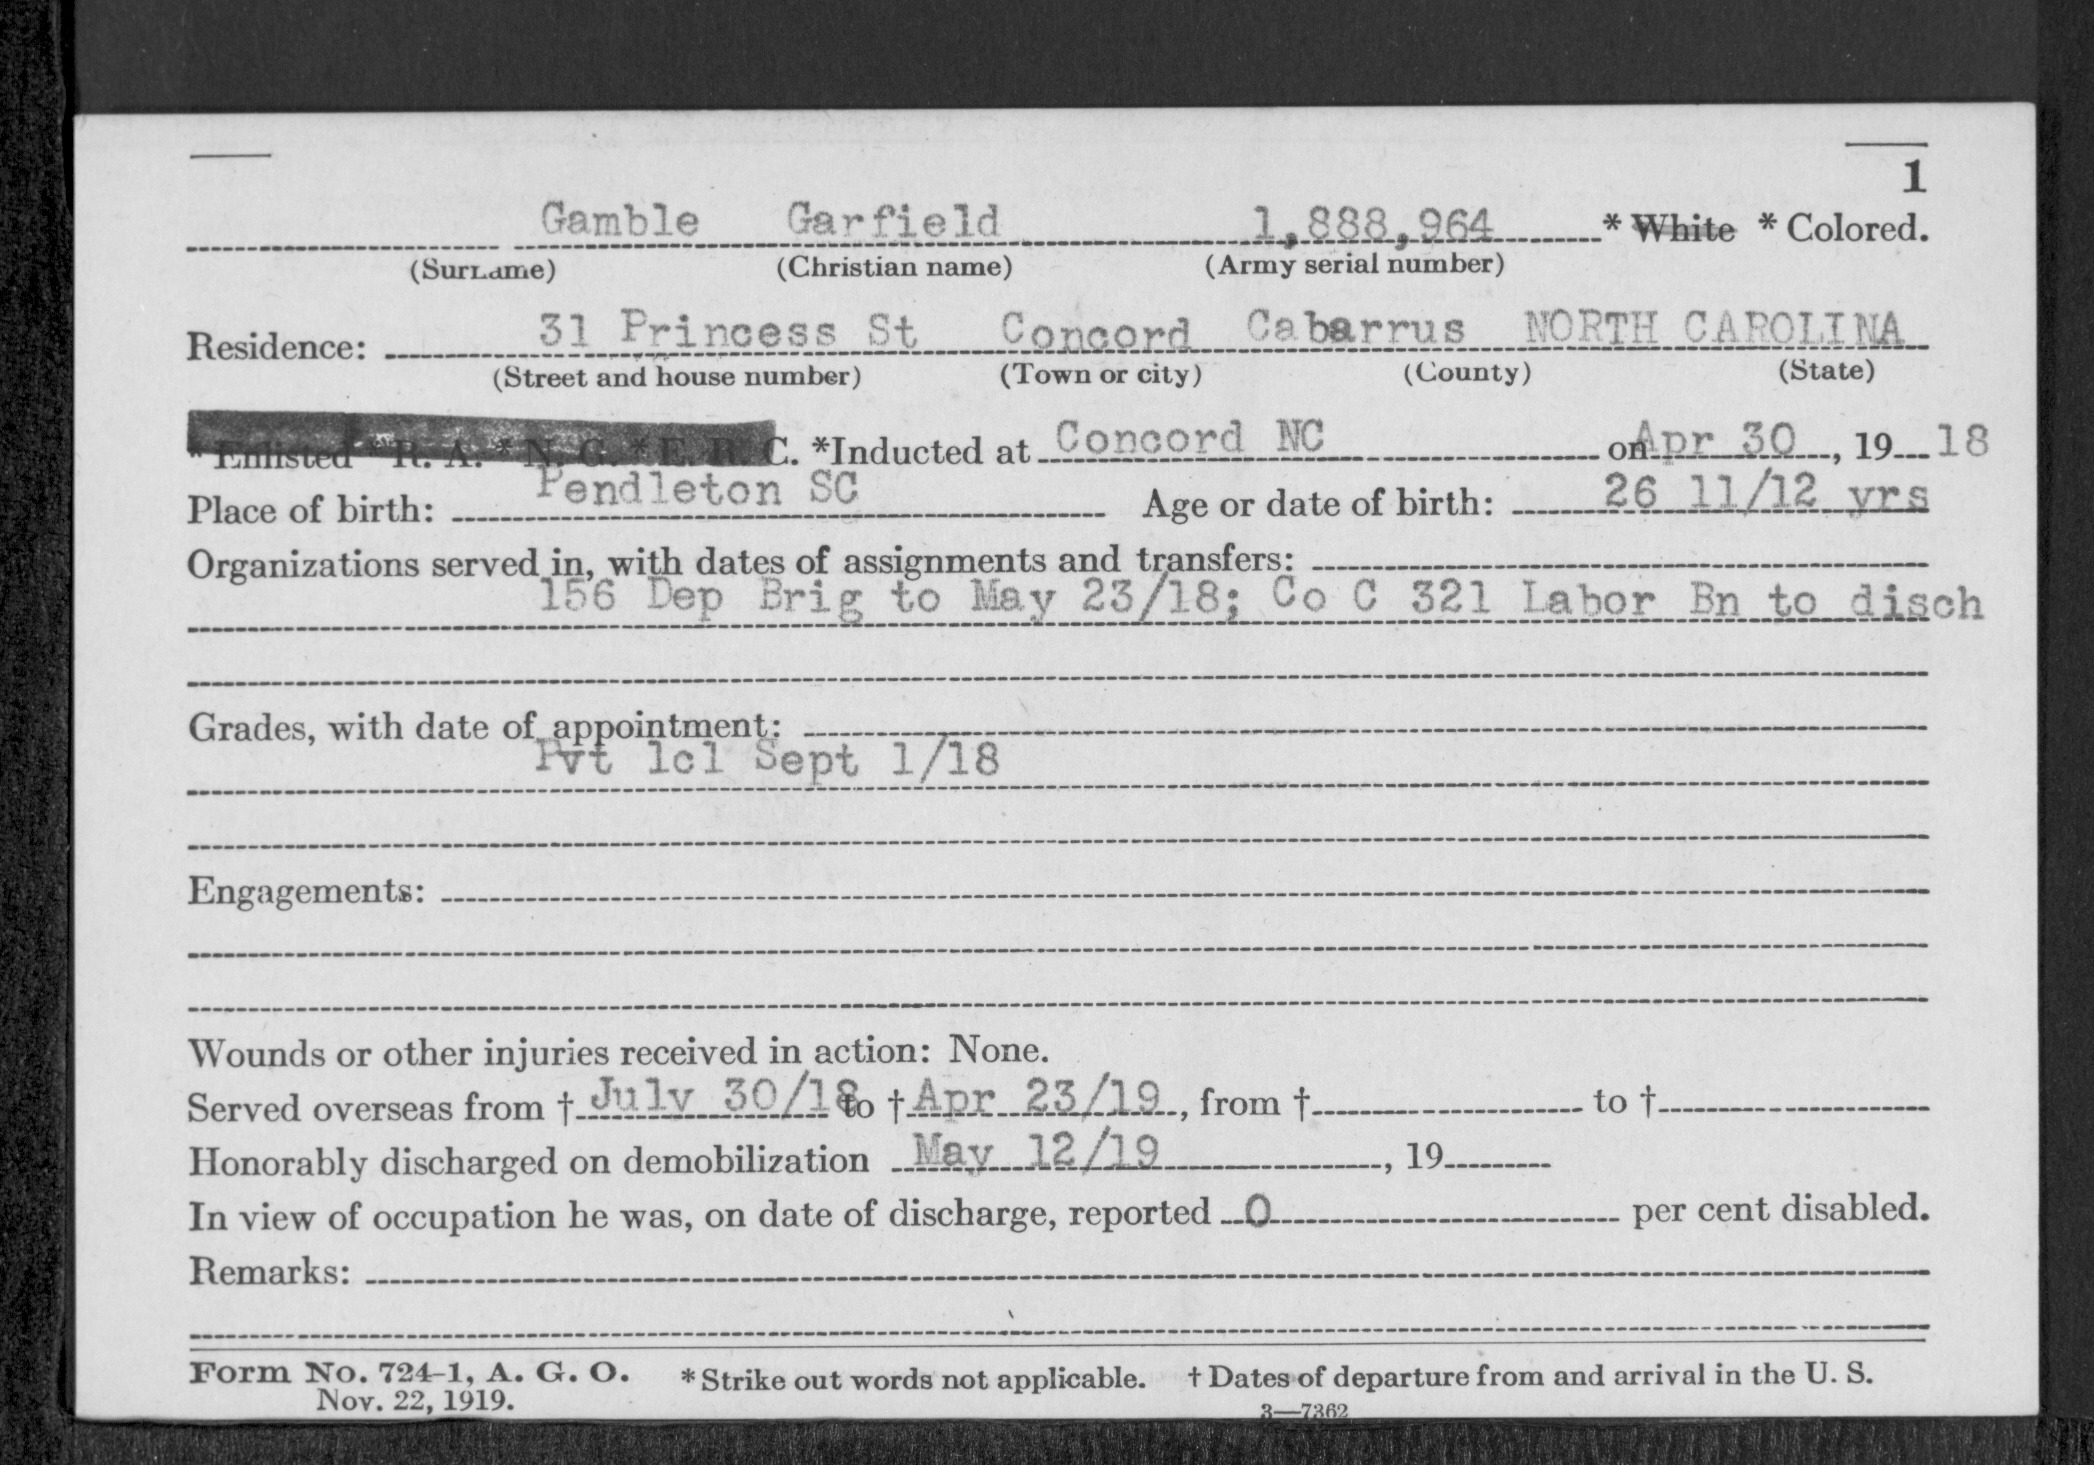 1
Gamble Garfield 1,888,964 * White * Colored.
(Surname) (Christian name) (Army serial number)
Residence: 31 Princess St Concord Cabarrus NORTH CAROLINA
(Street and house number) (Town or city) (County) (State)
* Enlisted * R. A. * N. G. * E. R. C. *Inducted at Concord NC on Apr 30, 19 18
Place of birth: Pendleton SC Age or date of birth: 26 11/12 yrs
Organizations served in, with dates of assignments and transfers:
156 Dep Brig to May 23/18; Co C 321 Labor Bn to disch
Grades, with date of appointment:
Pvt 1cl Sept 1/18
Engagements:
Wounds or other injuries received in action: None.
Served overseas from † July 30/18 to † Apr 23/19, from † to †
Honorably discharged on demobilization May 12/19, 19
In view of occupation he was, on date of discharge, reported 0 per cent disabled.
Remarks:
Form No. 724-1, A. G. O. * Strike out words not applicable. † Dates of departure from and arrival in the U. S.
Nov. 22, 1919. 3—7362